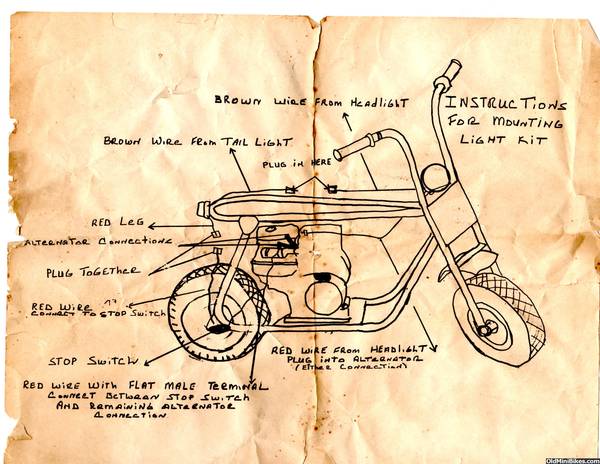 INSTRUCTIONS
FOR MOUNTING
LIGHT KIT
BROWN WIRE FROM HEADLIGHT
BROWN WIRE FROM TAIL LIGHT
PLUG IN HERE
RED LEG
ALTERNATOR CONNECTIONS
PLUG TOGETHER
RED WIRE
CONNECT TO STOP SWITCH
STOP SWITCH
RED WIRE FROM HEADLIGHT
PLUG INTO ALTERNATOR
(EITHER CONNECTION)
RED WIRE WITH FLAT MALE TERMINAL
CONNECT BETWEEN STOP SWITCH
AND REMAINING ALTERNATOR
CONNECTION
OldMiniBikes.com